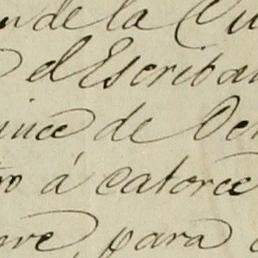 de la Ciu
el Escriban
ince de Oct
á catorce
para